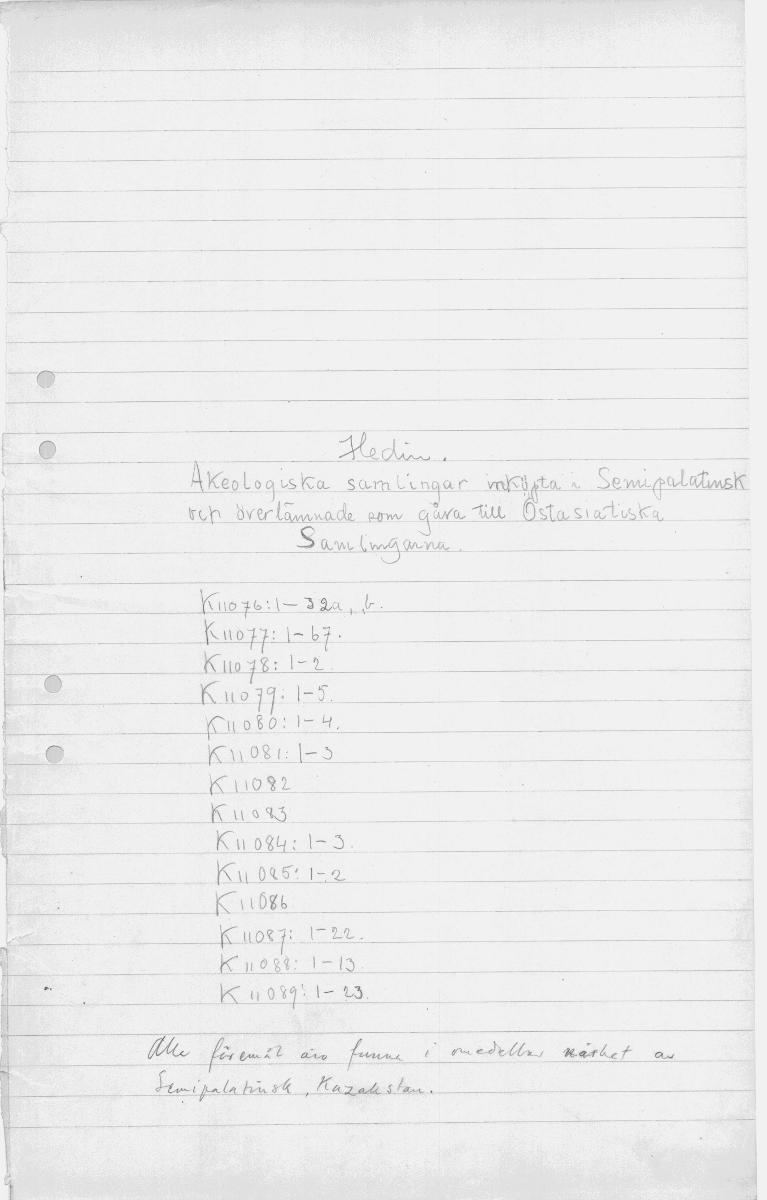 Hedin.
Akeologiska samlingar inköpta i Semipalatinsk
och överlämnade som gåva till Östasiatiska
Samlingarna.
K11076:1-32a, b.
K11077: 1-67.
K11078: 1-2
K11079: 1-5.
K11080: 1-4.
K11081: 1-3
K11082
K11083
K11084: 1-3.
K11085: 1-2
K11086
K11087: 1-22.
K11088: 1-13
K11089: 1-23.
Alla föremål äro funna i omedelbar närhet av
Semipalatinsk, Kazakstan.